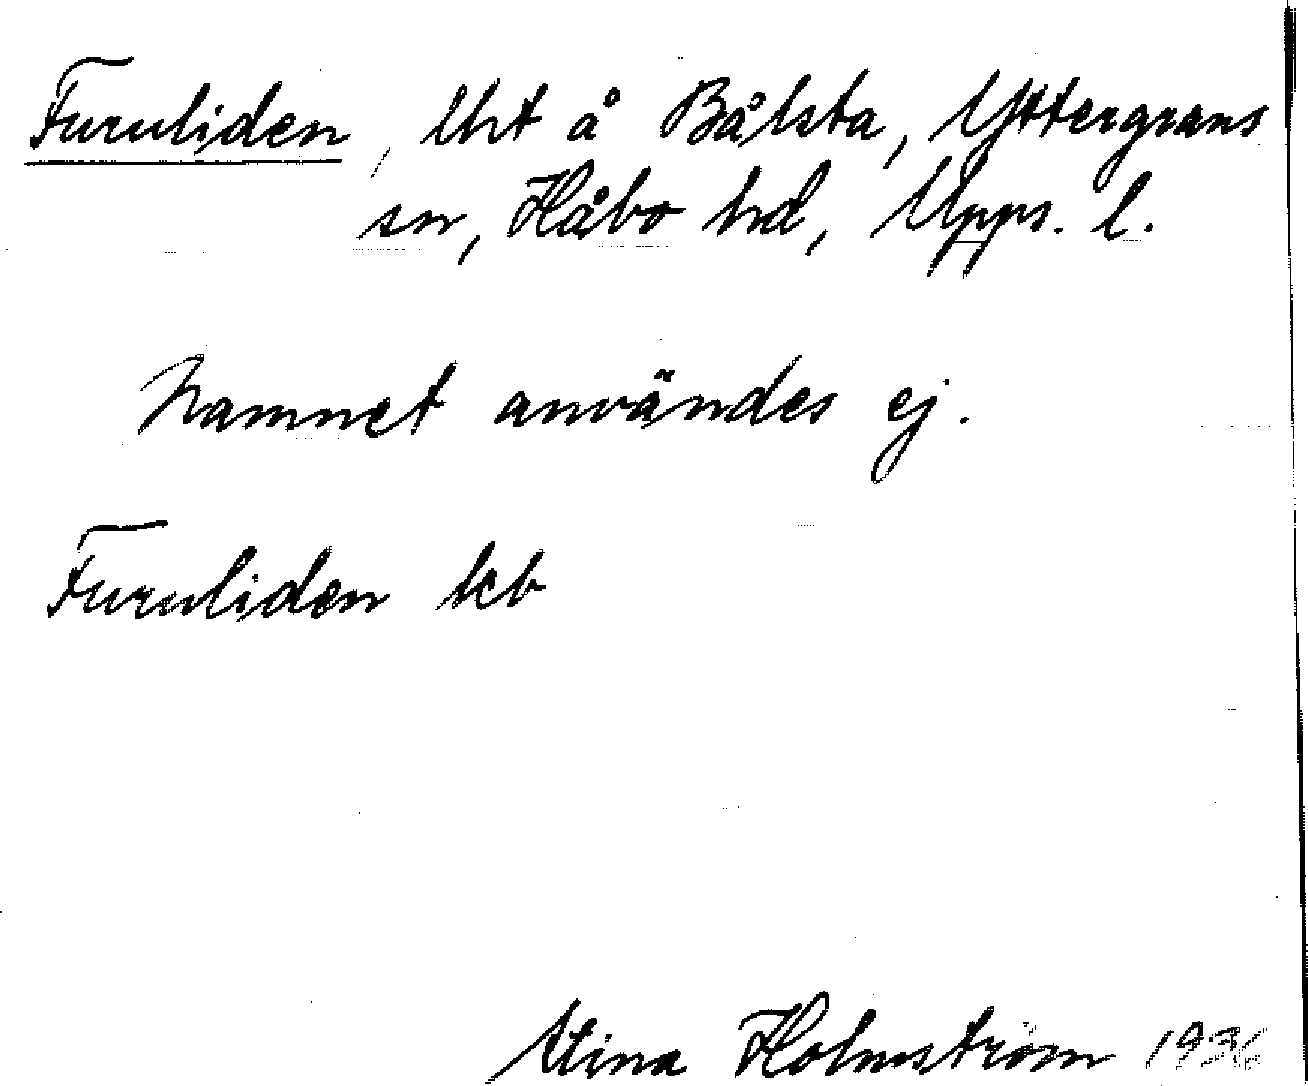 Furuliden, lht å Bålsta, Yttergrans
sn, Håbo hd, Upps. l.
Namnet användes ej.
Furuliden keb
Stina Holmström 1936